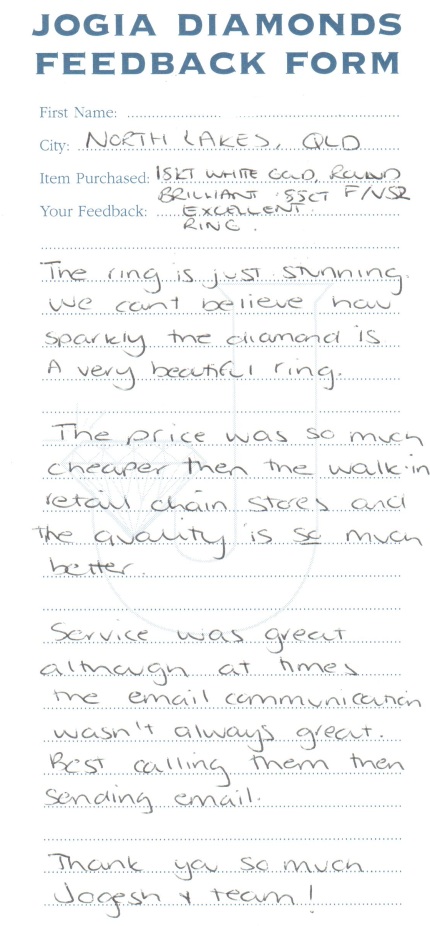 JOGIA DIAMONDS
FEEDBACK FORM
First Name:
City: NORTH LAKES, QLD
Item Purchased: 18KT WHITE GOLD, ROUND
BRILLIANT .55CT F/VS2
Your Feedback: EXCELLENT
RING.
The ring is just stunning.
We can't believe how
sparkly the diamond is
A very beautiful ring.
The price was so much
cheaper then the walk-in
retail chain stores and
the quality is so much
better.
Service was great
although at times
the email communication
wasn't always great.
Best calling them then
sending email.
Thank you so much
Jogesh & team!